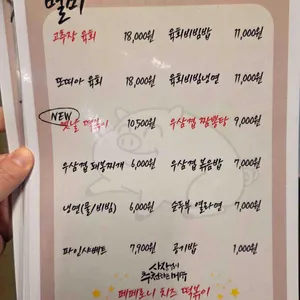 별미
고추장 육회 18,000원 육회비빔밥 11,000원
또띠아 육회 18,000원 육회비빔냉면 11,000원
NEW
옛날 떡볶이 10,500원 우삼겹 짬뽕탕 9,000원
우삼겹 된장찌개 6,000원 우삼겹 볶음밥 7,000원
냉면(물/비빔) 6,000원 순두부 열라면 7,000원
파인샤베트 7,900원 공기밥 1,000원
사장님의
추천하는메뉴
페페로니 치즈 떡볶이